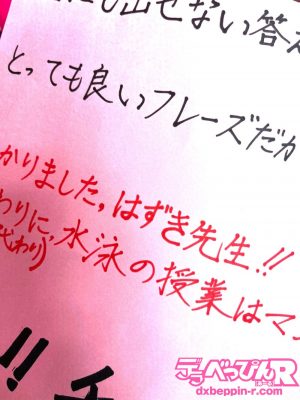 にも出せない答え
とっても良いフレーズだか
かりました,はずき先生!!
わりに,水泳の授業はマン
代わり)
!!チ
デラべっぴんR
dxbeppin-r.com